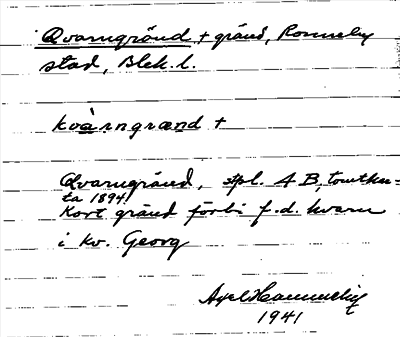 Qvarngränd + gränd, Ronneby
stad, Blek. l.
kvàrngrænd +
Qvarngränd, stpl. 4 B, tomtkar-
ta 1894
Kort gränd förbi f.d. kvarn
i kv. Georg
Axel Hammerling
1941